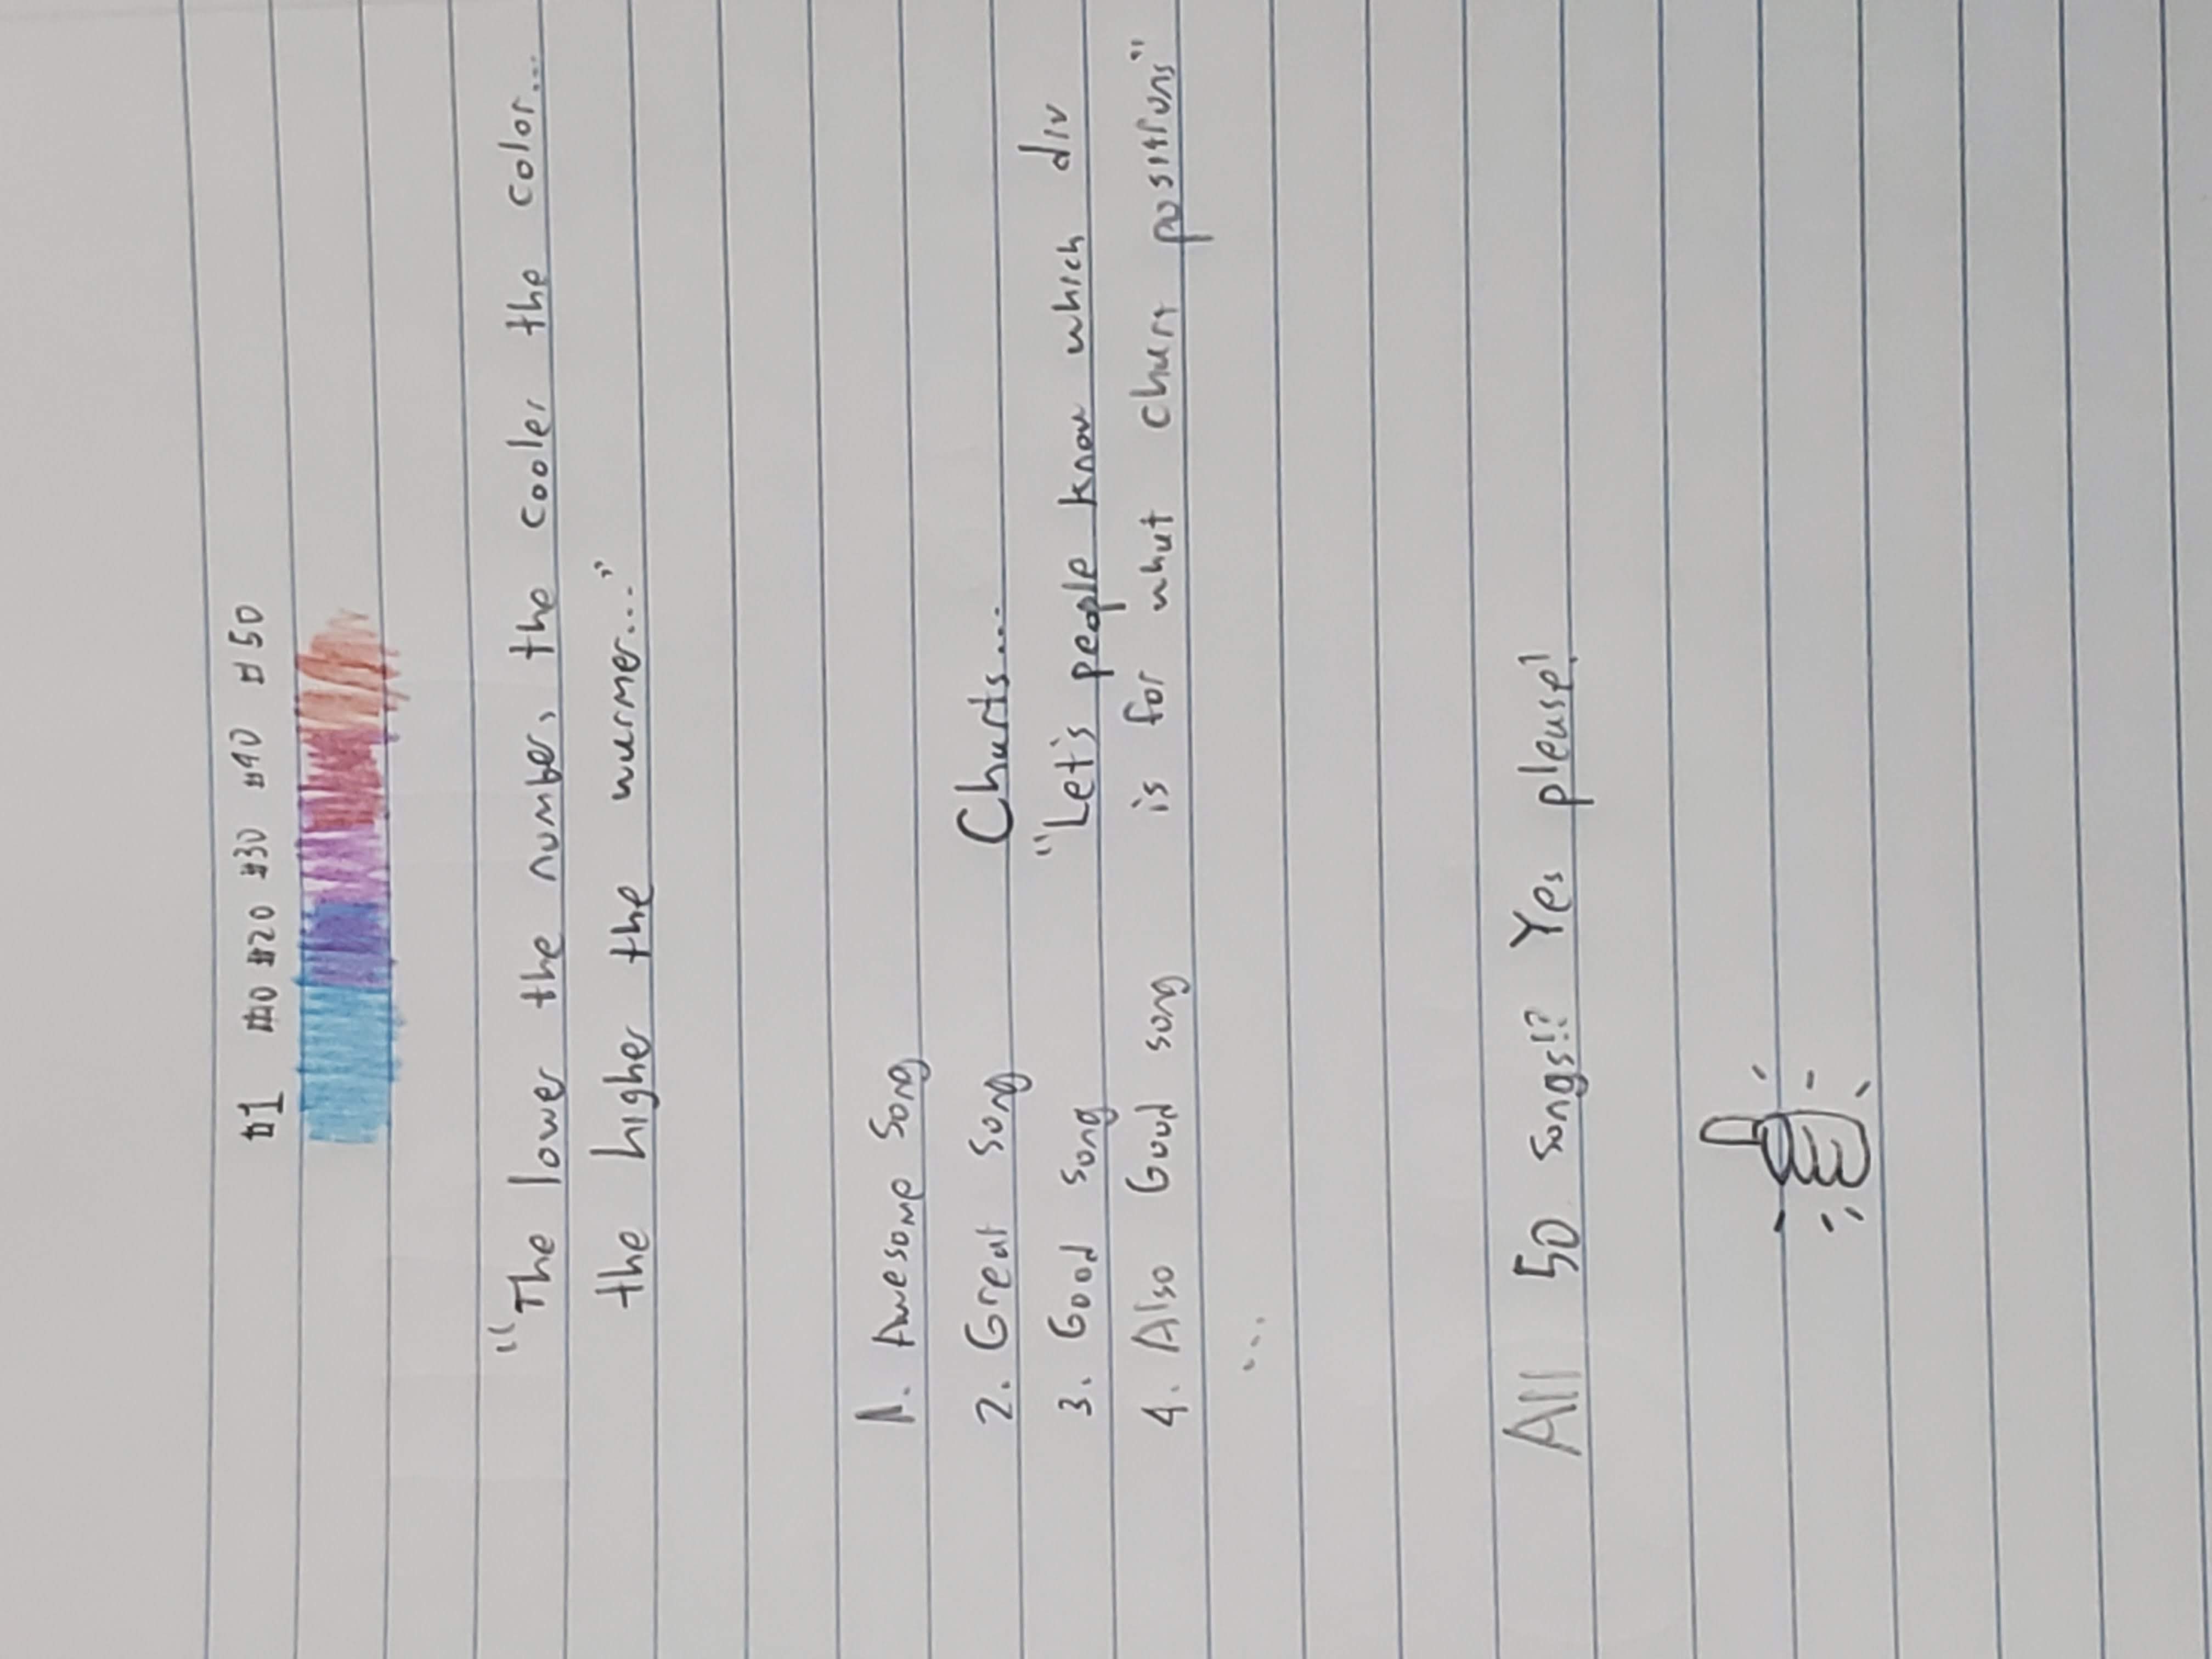 #1 #10 #20 #30 #40 #50
"The lower the number, the cooler the color...
the higher the warmer..."
1. Awesome Song
2. Great song
3. Good song
4. Also Good song
...
Charts...
"Let's people know which div
is for what chart positions"
All 50 songs!? Yes please!